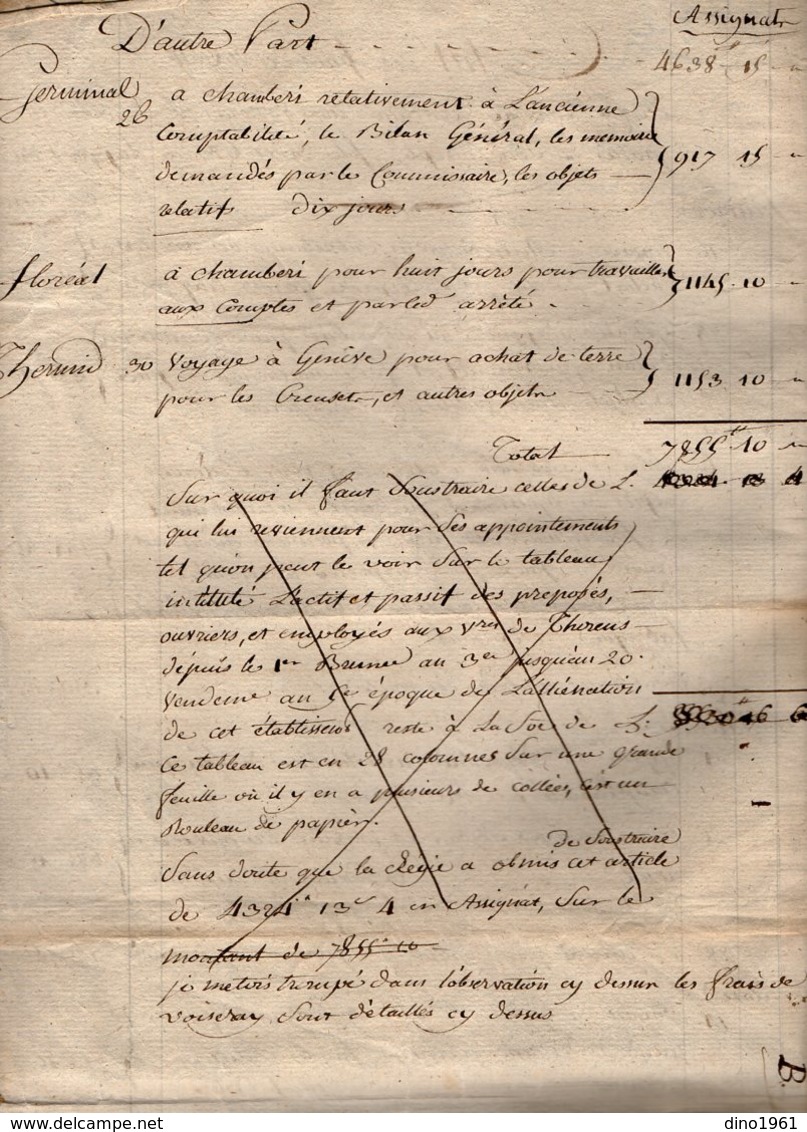 Assignats
D'autre Part - - - - - 4638 ₶ 15 "
Germinal 26 a chamberi relativement à L'ancienne
Comptabilité, le Bilan Général, les memoire
demandés par le Commissaire, les objets — 917 15 "
relatifs dix jours - - -
floréal à chamberi pour huit jours pour travailler
aux Comptes et par led arrété. 1145 . 10 -
Thermid 30 Voyage à Genêve pour achat de terre
pour les Creusets, et autres objets 1153 . 10 "
Total — 7855 ₶ 10 "
Sur quoi il faut Soustraire celles de L. 4324 13 4
qui lui reviennent pour Ses appointements
tel qu'on peut le voir Sur le tableau
intitulé L'actif et passif des preposés, —
ouvriers, et employés aux Vres de Thorens —
dépuis le 1er Brumre an 3e jusqu'au 20.
Vendemre an 5e époque de L'alliénation
de cet établissemt reste à La Soe de L.
Ce tableau est en 28 colonnes Sur une grande
feuille où il y en a plusieurs de collées, c'est un
Rouleau de papier.
de Soustraire
Sans doute que la Regie a obmis cet article
de 4324 ₶ 13 s 4 en Assignat, Sur le
montant de 7855 ₶ 10
je metois trompé dans l'observation cy dessus les frais de
voiseray Sont détaillés cy dessus
B.
dino1961